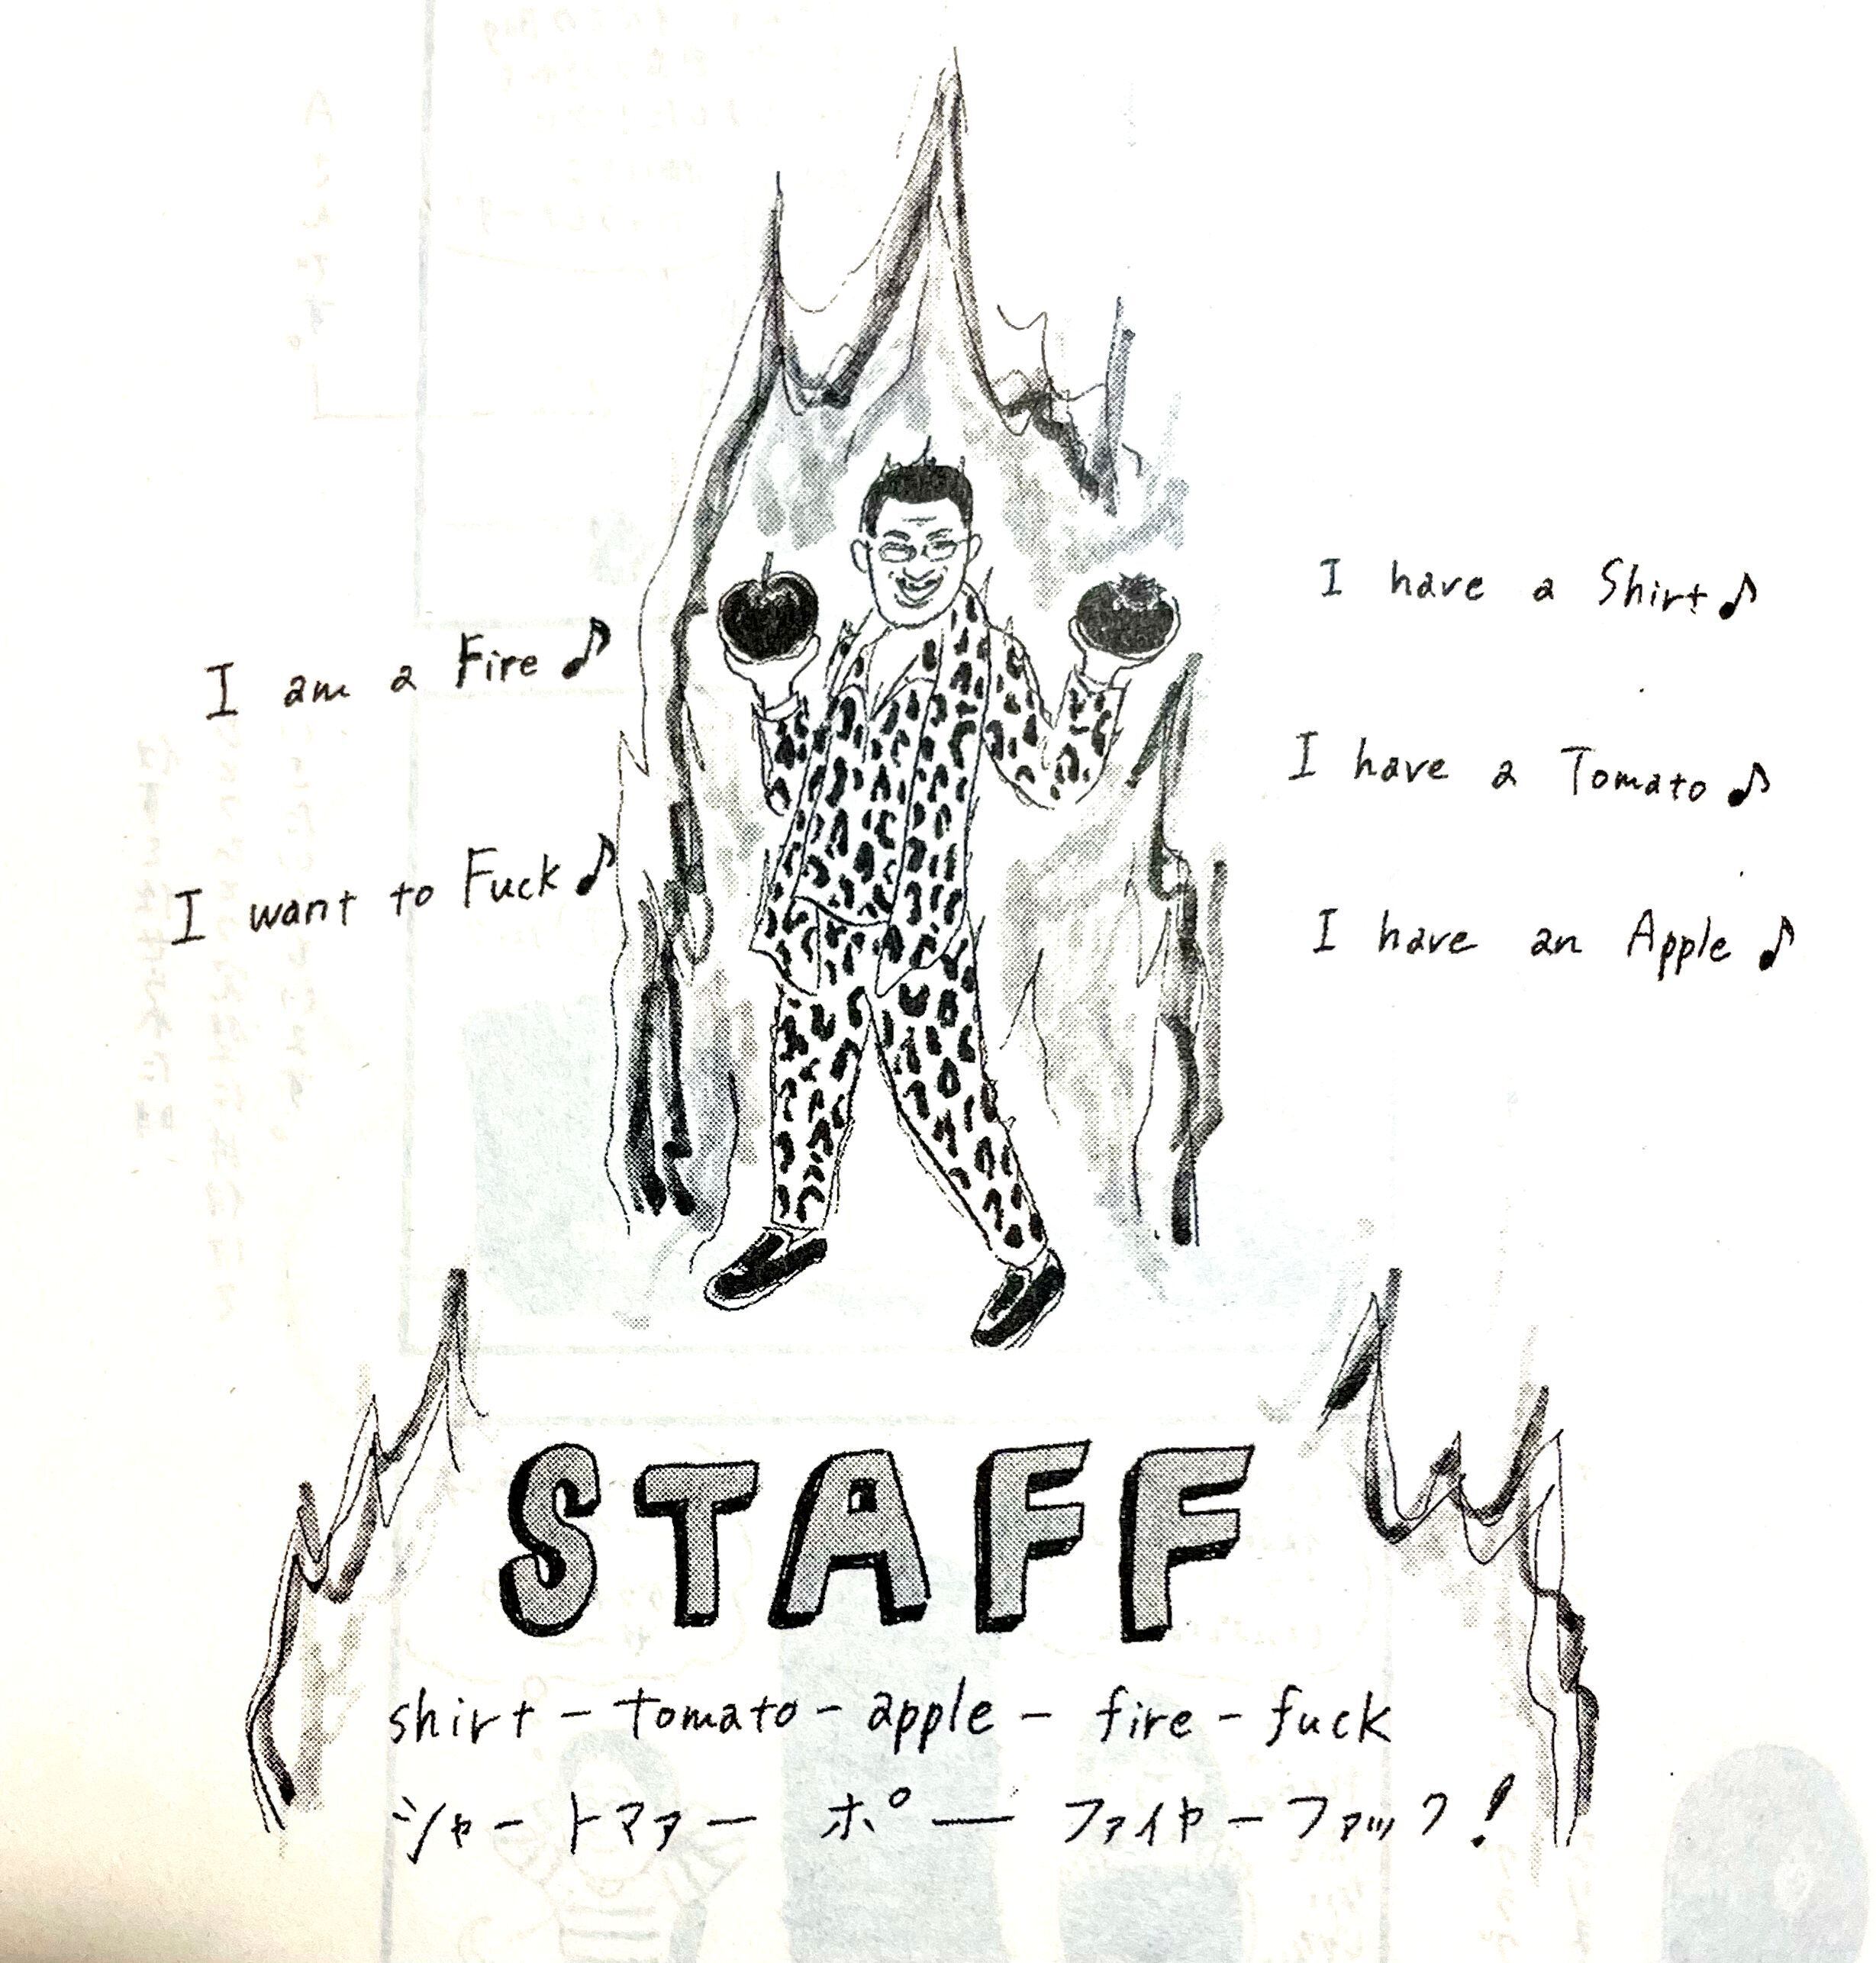 I have a Shirt♪
I have a Tomato♪
I have an Apple♪
I am a Fire♪
I want to Fuck♪
STAFF
shirt - tomato - apple - fire - fuck
シャートマァー ポー ファイヤーファック!